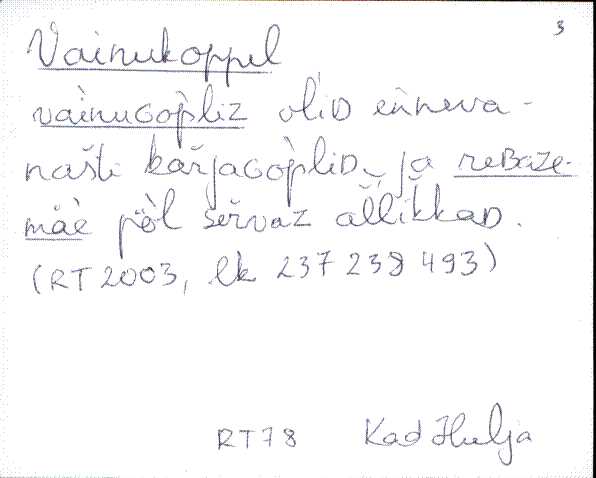 3
Vainukoppel
vàinuGòpliz oliD eǹneva-
našti kàřjaGòpliD ja reBaže-
mäè pö̀l šeřvaz aľľikkaD.
(RT 2003, lk 237 238 493)
RT78 Kad Hulja